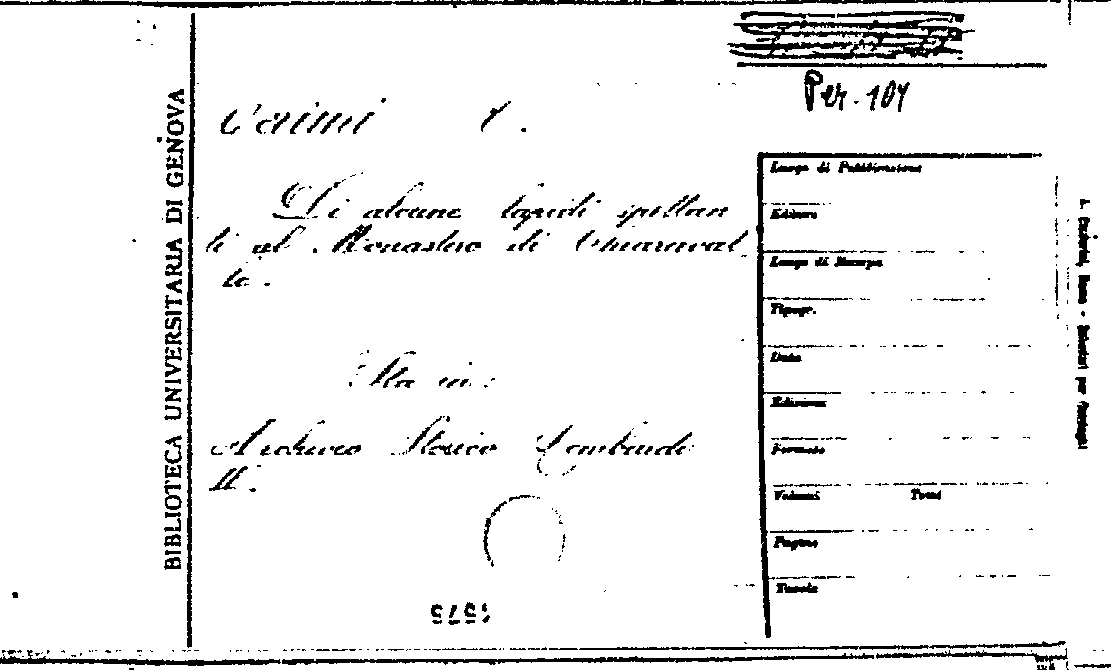 Per. 104
BIBLIOTECA UNIVERSITARIA DI GENOVA
Caimi
Di alcune lapidi spettan
ti al Monastero di Chiaraval
le.
Sta in:
Archivio Storico Lombardo
II.
Luogo di Pubblicazione
Editore
Luogo di Stampa
Tipogr.
Data
Edizione
Formato
Volumi Tomi
Pagine
Tavole
Roma - Schedari per